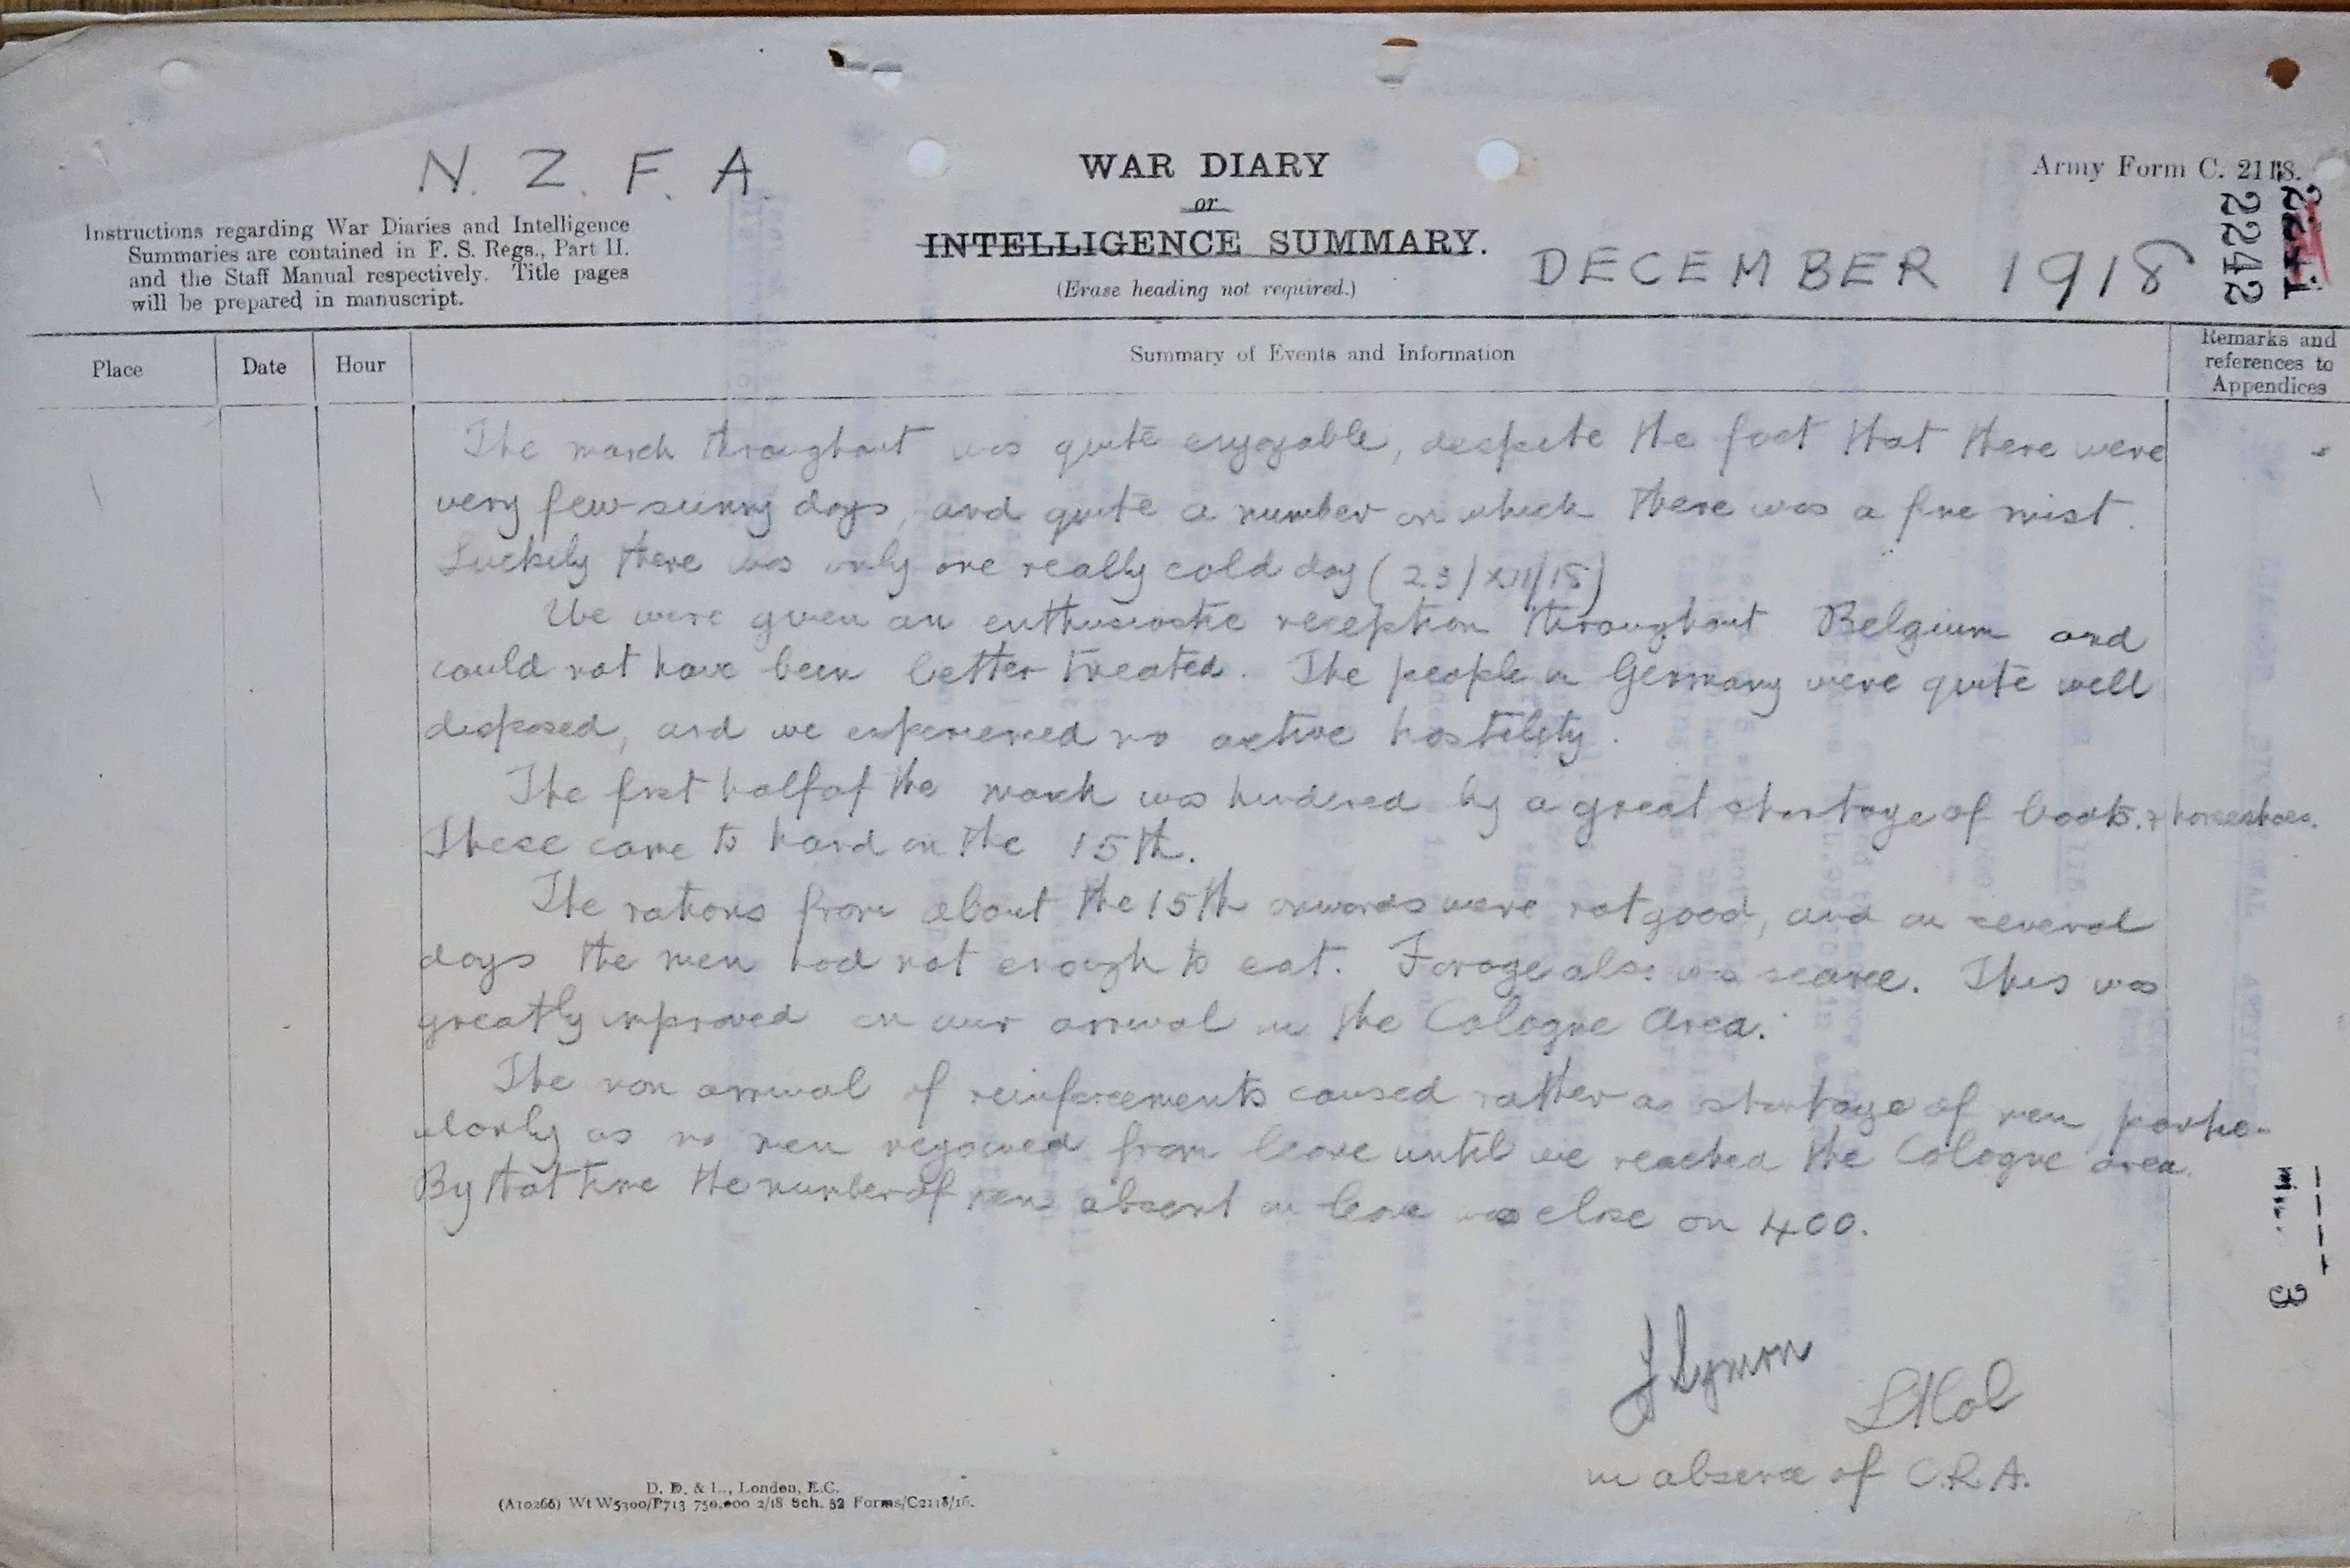 N. Z. F. A.
WAR DIARY
or
INTELLIGENCE SUMMARY.
(Erase heading not required.)
Army Form C. 2118.
2242
DECEMBER 1918
Instructions regarding War Diaries and Intelligence
Summaries are contained in F. S. Regs., Part II.
and the Staff Manual respectively. Title pages
will be prepared in manuscript.
Place
Date
Hour
Summary of Events and Information
Remarks and
references to
Appendices
The march throughout was quite enjoyable, despite the fact that there were
very few sunny days, and quite a number on which there was a fine mist.
Luckily there was only one really cold day (23/XII/18)
We were given an enthusiastic reception throughout Belgium and
could not have been better treated. The people in Germany were quite well
disposed, and we experienced no active hostility.
The first half of the march was hindered by a great shortage of boots & horseshoes.
These came to hand on the 15th.
The rations from about the 15th onwards were not good, and on several
days the men had not enough to eat. Forage also was scarce. This was
greatly improved on our arrival in the Cologne Area.
The non arrival of reinforcements caused rather a shortage of men, partic-
ularly as no men rejoined from leave until we reached the Cologne area.
By that time the number of men absent on leave was close on 400.
LtCol
in absence of C.R.A.
3
D. D. & L., London, E.C.
(A10266) Wt W5300/P713 750,000 2/18 Sch. 52 Forms/C2118/16.